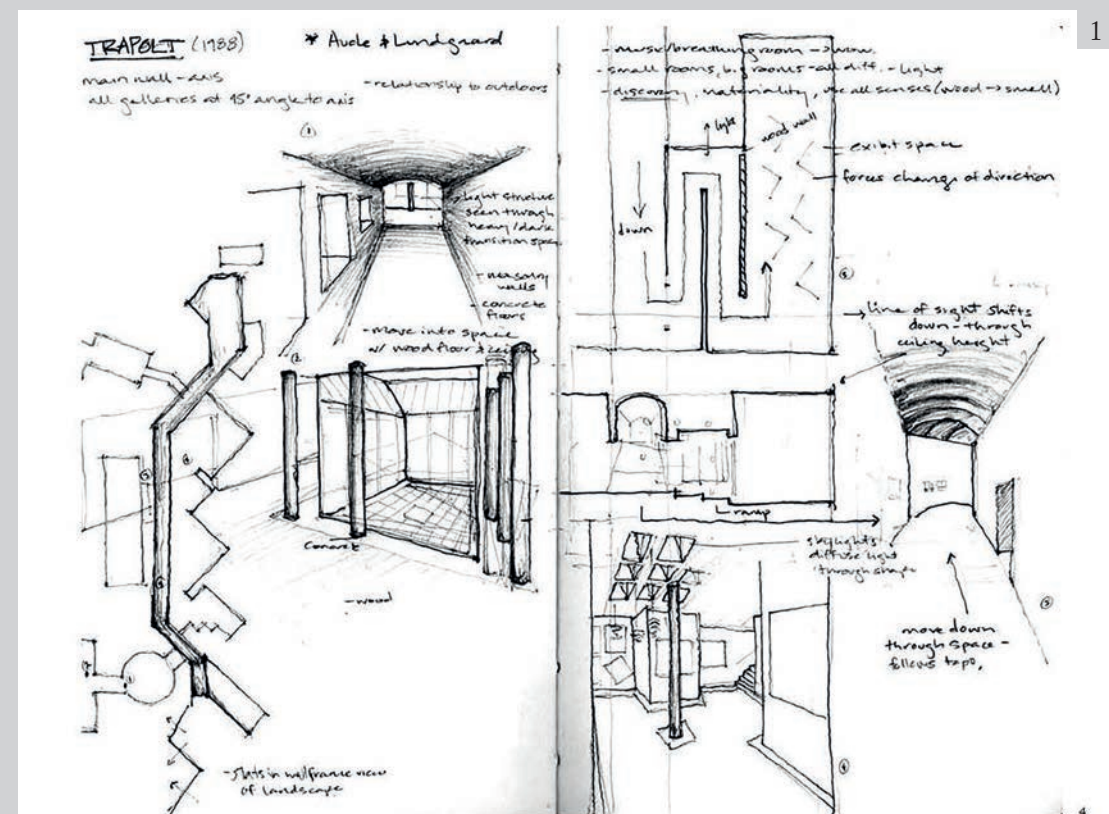 1
TRAPOLT (1988)
* Avole & Lundgaard
main wall - axis
all galleries at 45° angle to axis
- relationship to outdoors
1
light structure
seen through
heavy/dark
transition space
- masonry
walls
- concrete
floors
- move into space
w/ wood floor & ceiling
2
concrete
- wood
- slats in wall frame view
of landscape
- music/breathing room -> wow.
- small rooms, big rooms - all diff. - light
- discovery, materiality, use all senses (wood -> smell)
light
wood wall
exibit space
forces change of direction
down
line of sight shifts
down - through
ceiling height
ramp
skylights
diffuse light
through shapes
move down
through space -
follows topo.
3
4